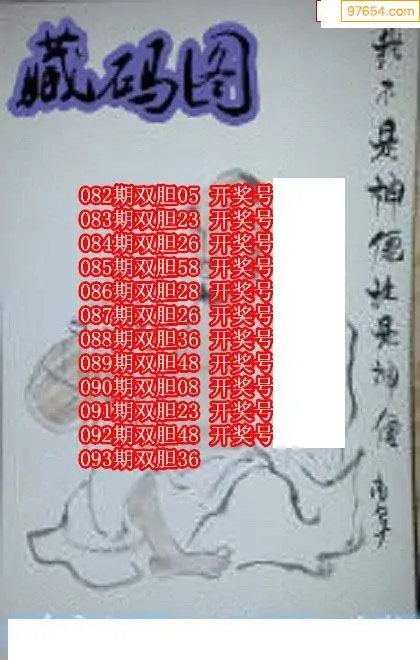 97654.com
藏码图
我不是神僊谁是神僊
082期双胆05 开奖号
083期双胆23 开奖号
084期双胆26 开奖号
085期双胆58 开奖号
086期双胆28 开奖号
087期双胆26 开奖号
088期双胆36 开奖号
089期双胆48 开奖号
090期双胆08 开奖号
091期双胆23 开奖号
092期双胆48 开奖号
093期双胆36